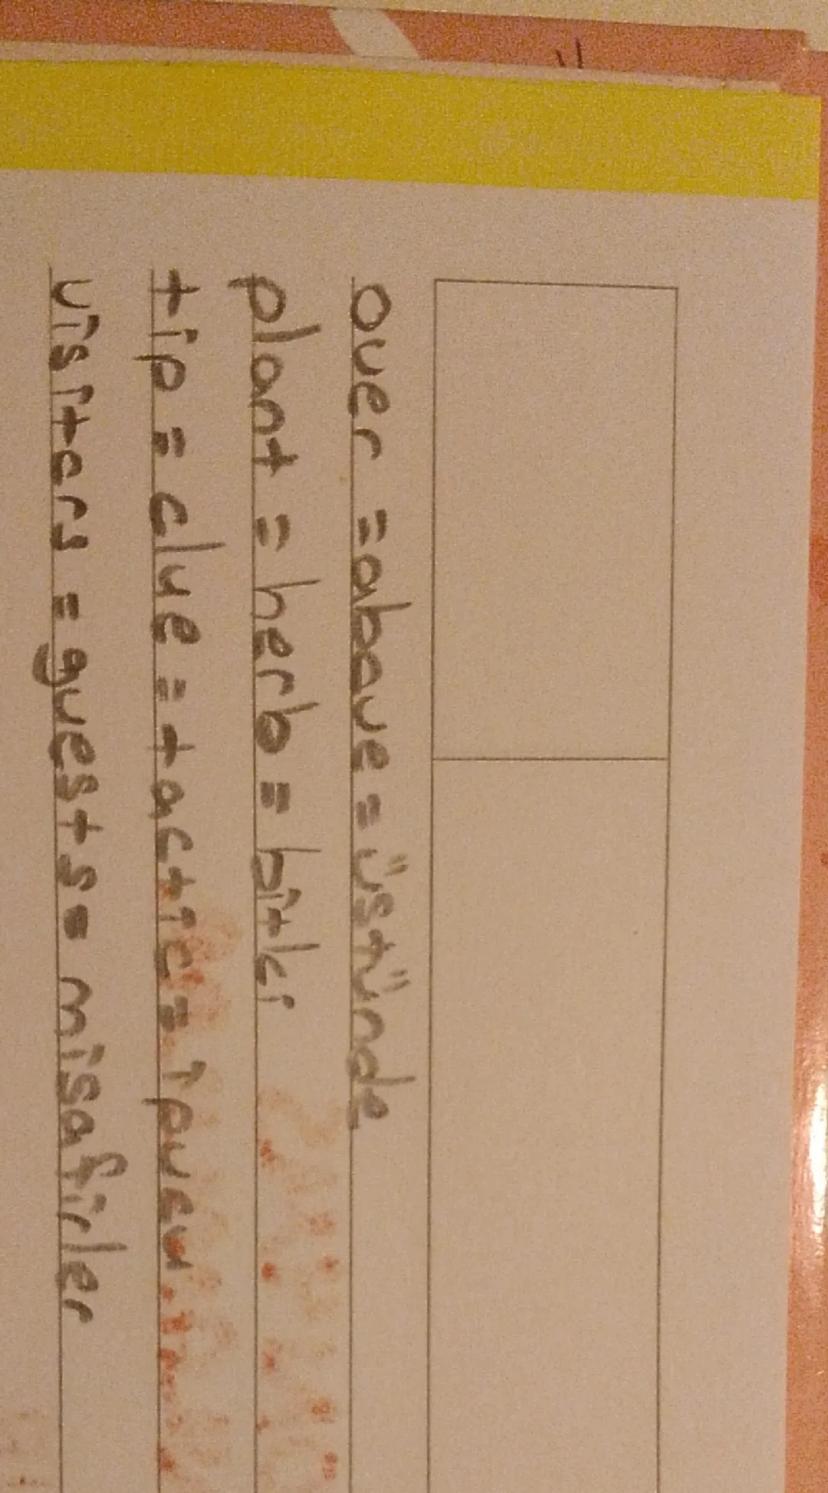 over = above = üstünde
plant = herb = bitki
tip = clue = tactic = ipucu
visiters = guests = misafirler